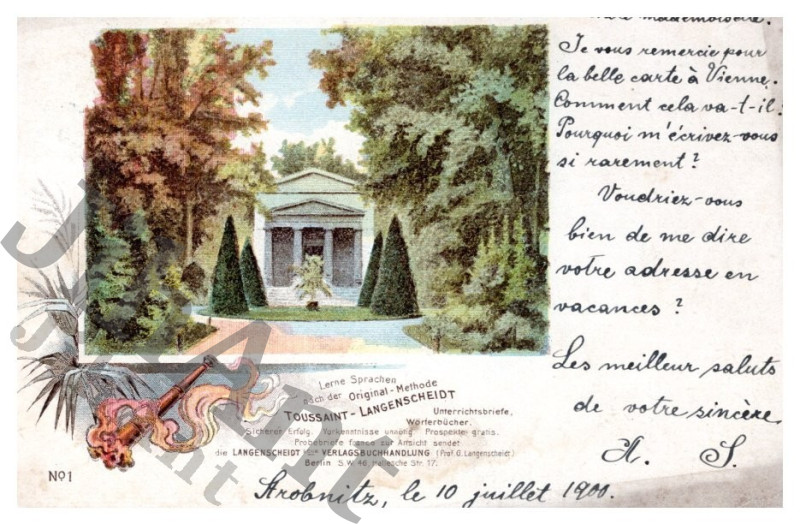 mademoiselle.
Je vous remercie pour
la belle carte à Vienne.
Comment cela va-t-il?
Pourquoi m'écrivez-vous
si rarement?
Voudriez-vous
bien de me dire
votre adresse en
vacances?
Les meilleur saluts
de votre sincère
A. S.
Lerne Sprachen
nach der Original-Methode
TOUSSAINT-LANGENSCHEIDT
Unterrichtsbriefe,
Wörterbücher.
Sicherer Erfolg. Vorkenntnisse unnötig. Prospekte gratis.
Probebriefe franco zur Ansicht sendet
die LANGENSCHEIDT'sche VERLAGSBUCHHANDLUNG (Prof. G. Langenscheidt)
Berlin S.W. 46, Hallesche Str. 17.
No 1
Strobnitz, le 10 juillet 1900.